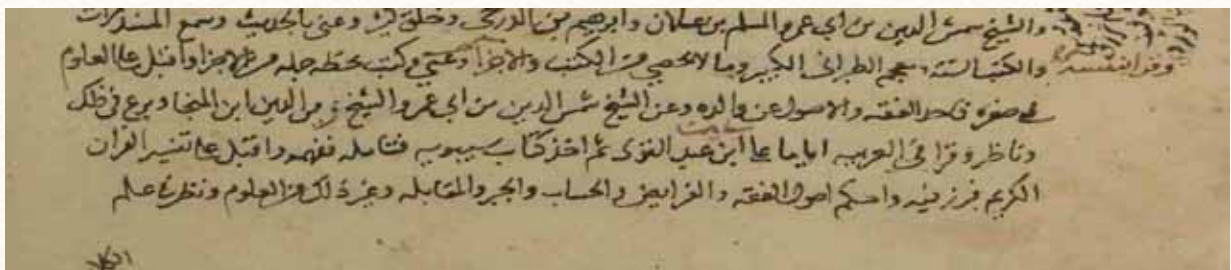 والشيخ شمس الدين بن ابي عمر والمسلم بن علان وابرهيم بن الدرجي وخلق كثير وعني بالحديث وسمع المسند مرات
والكتب الستة ومعجم الطبراني الكبير وما لا يحصي من الكتب والاجزا وعني وكتب بخطه جمله من الاجزا واقبل علي العلوم
في صغره فاخذ الفقه والاصول عن والده وعن الشيخ شمس الدين بن ابي عمر والشيخ زين الدين ابن المنجا وبرع في ذلك
وناظر وقرا في العربيه اياما علي ابن عبد القوي ثم اخذ كتاب سيبويه فتامله ففهمه واقبل علي تفسير القران
الكريم فبرز فيه واحكم اصول الفقه والفرايض والحساب والجبر والمقابله وغير ذلك من العلوم ونظر في علم
الكلا